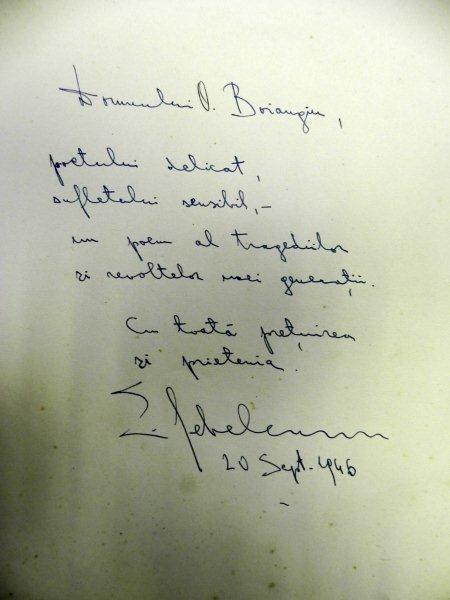 Domnului O. Boiangiu,
poetului delicat,
sufletului sensibil, –
un poem al tragediilor
și revoltelor unei generații.
Cu toată prețuirea
și prietenia.
E. Jebeleanu
20 Sept. 1946